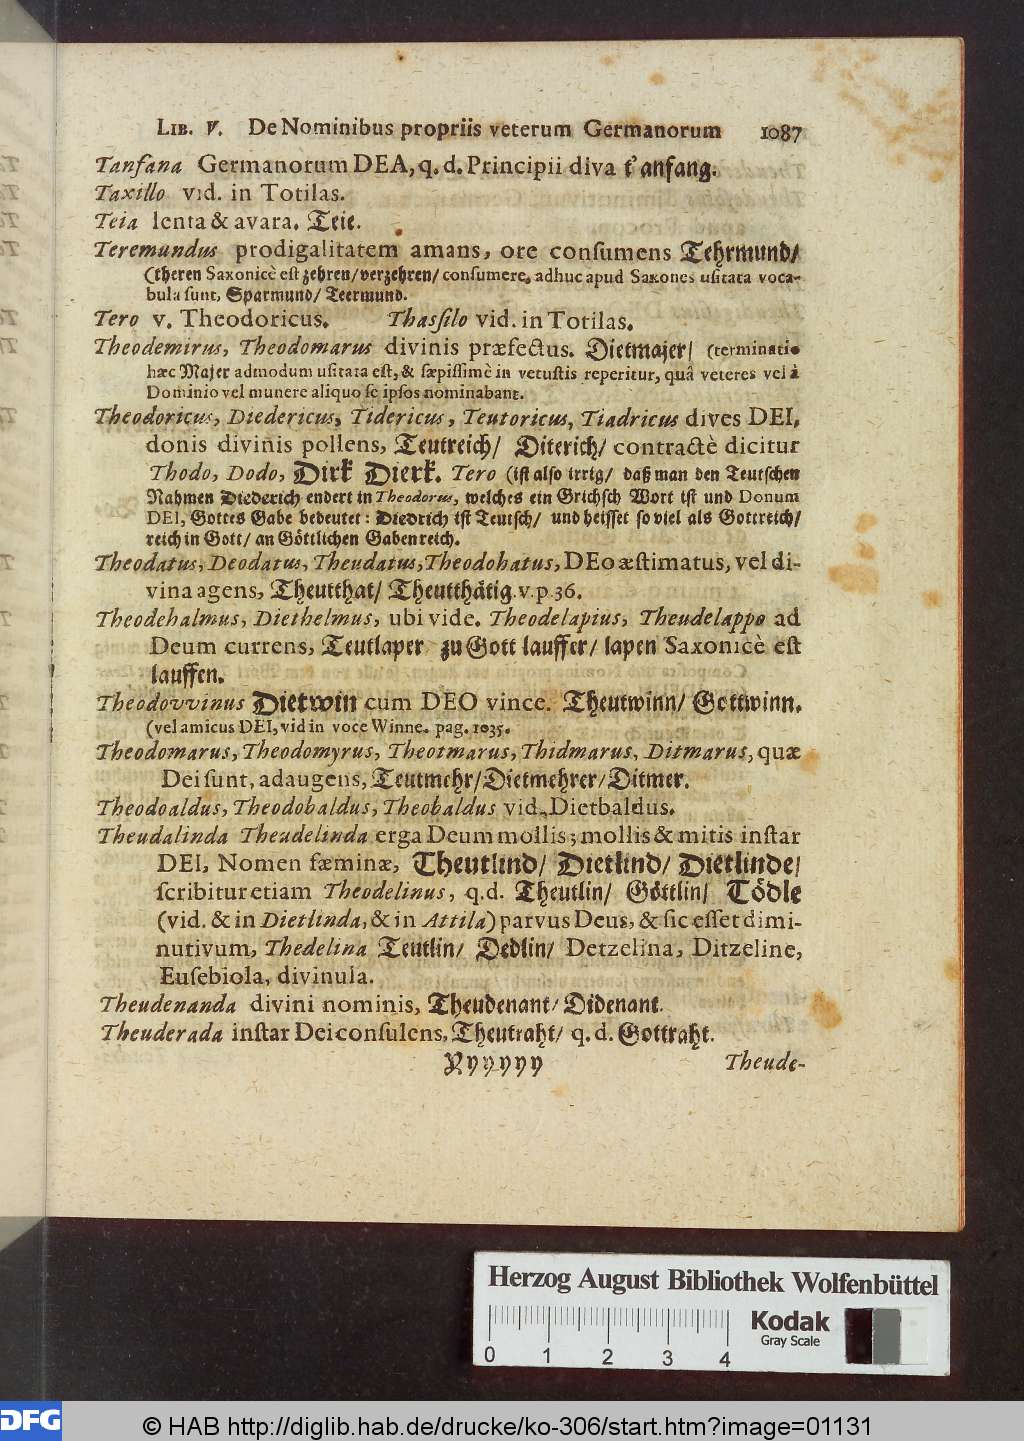 LIB. V. De Nominibus propriis veterum Germanorum 1087
Tanfana Germanorum DEA, q. d. Principii diva t'anfang.
Taxillo vid. in Totilas.
Teia lenta & avara. Teie.
Teremundus prodigalitatem amans, ore conſumens Tehrmund/
(theren Saxonicè eſt zehren/verzehren/ conſumere, adhuc apud Saxones uſitata voca-
bula ſunt, Sparmund/ Teermund.
Tero v. Theodoricus. Thaſſilo vid. in Totilas.
Theodemirus, Theodomarus divinis præfectus. Dietmajer/ (terminatio
hæc Majer admodum uſitata eſt, & ſæpiſſimè in vetuſtis reperitur, quâ veteres vel à
Dominio vel munere aliquo ſe ipſos nominabant.
Theodoricus, Diedericus, Tidericus, Teutoricus, Tiadricus dives DEI,
donis divinis pollens, Teutreich/ Diterich/ contractè dicitur
Thodo, Dodo, Dirk Dierk. Tero (iſt alſo irrig/ daß man den Teutſchen
Nahmen Diederich endert in Theodorus, welches ein Grichſch Wort iſt und Donum
DEI, Gottes Gabe bedeutet: Diedrich iſt Teutſch/ und heiſſet ſo viel als Gottreich/
reich in Gott/ an Göttlichen Gaben reich.
Theodatus, Deodatus, Theudatus, Theodohatus, DEo æſtimatus, vel di-
vina agens, Theutthat/ Theutthätig. v. p. 36.
Theodehalmus, Diethelmus, ubi vide. Theodelapius, Theudelappo ad
Deum currens, Teutlaper zu Gott lauffer/ lapen Saxonicè eſt
lauffen.
Theodovvinus Dietwin cum DEO vince. Theutwinn/ Gottwinn.
(vel amicus DEI, vid in voce Winne. pag. 1035.
Theodomarus, Theodomyrus, Theotmarus, Thidmarus, Ditmarus, quæ
Dei ſunt, adaugens, Teutmehr/Dietmehrer/Ditmer.
Theodoaldus, Theodobaldus, Theobaldus vid. Dietbaldus.
Theudalinda Theudelinda erga Deum mollis; mollis & mitis inſtar
DEI, Nomen fæminæ, Theutlind/ Dietlind/ Dietlinde/
ſcribitur etiam Theodelinus, q.d. Theutlin/ Göttlin/ Tödle
(vid. & in Dietlinda, & in Attila) parvus Deus, & ſic eſſet dimi-
nutivum, Thedelina Teutlin/ Dedlin/ Detzelina, Ditzeline,
Euſebiola, divinula.
Theudenanda divini nominis, Theudenant/ Didenant.
Theuderada inſtar Dei conſulens, Theutraht/ q. d. Gottraht.
Yyyyyy Theude-
Herzog August Bibliothek Wolfenbüttel
Kodak
Gray Scale
0 1 2 3 4
DFG © HAB http://diglib.hab.de/drucke/ko-306/start.htm?image=01131